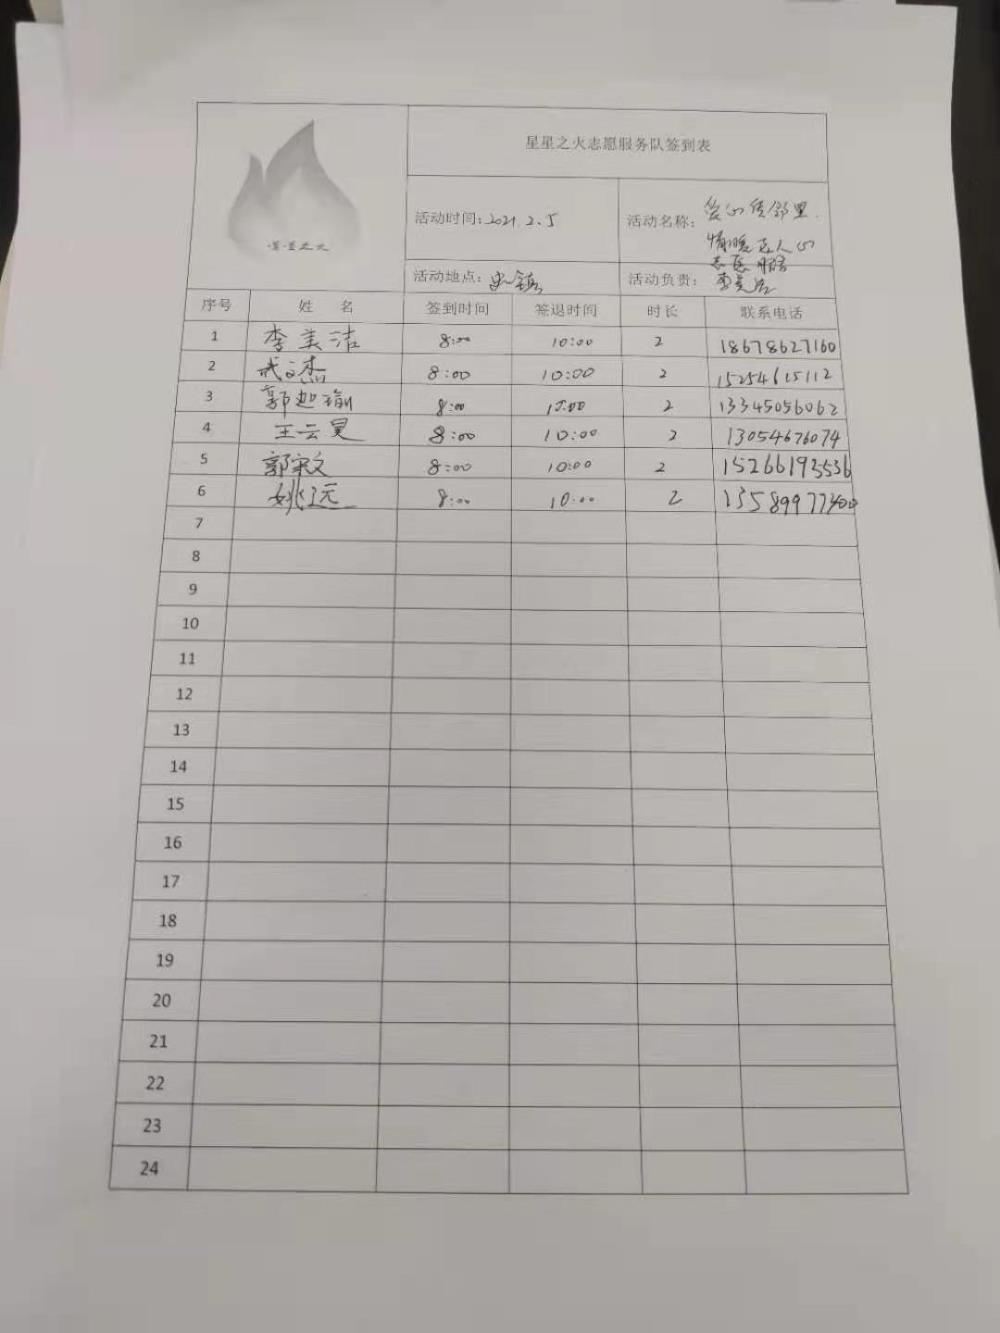 星星之火志愿服务队签到表
星星之火
活动时间：2021.2.5
活动名称：爱心传邻里
情暖志人心
志愿服务
活动地点：史镇
活动负责：李美洁
序号 姓 名 签到时间 签退时间 时长 联系电话
1 李美洁 8:00 10:00 2 18678627160
2 武文杰 8:00 10:00 2 15254615112
3 郭迦瑜 8:00 10:00 2 13345056062
4 王云昊 8:00 10:00 2 13054676074
5 郭宗文 8:00 10:00 2 15266193536
6 姚远 8:00 10:00 2 13589977400
7
8
9
10
11
12
13
14
15
16
17
18
19
20
21
22
23
24